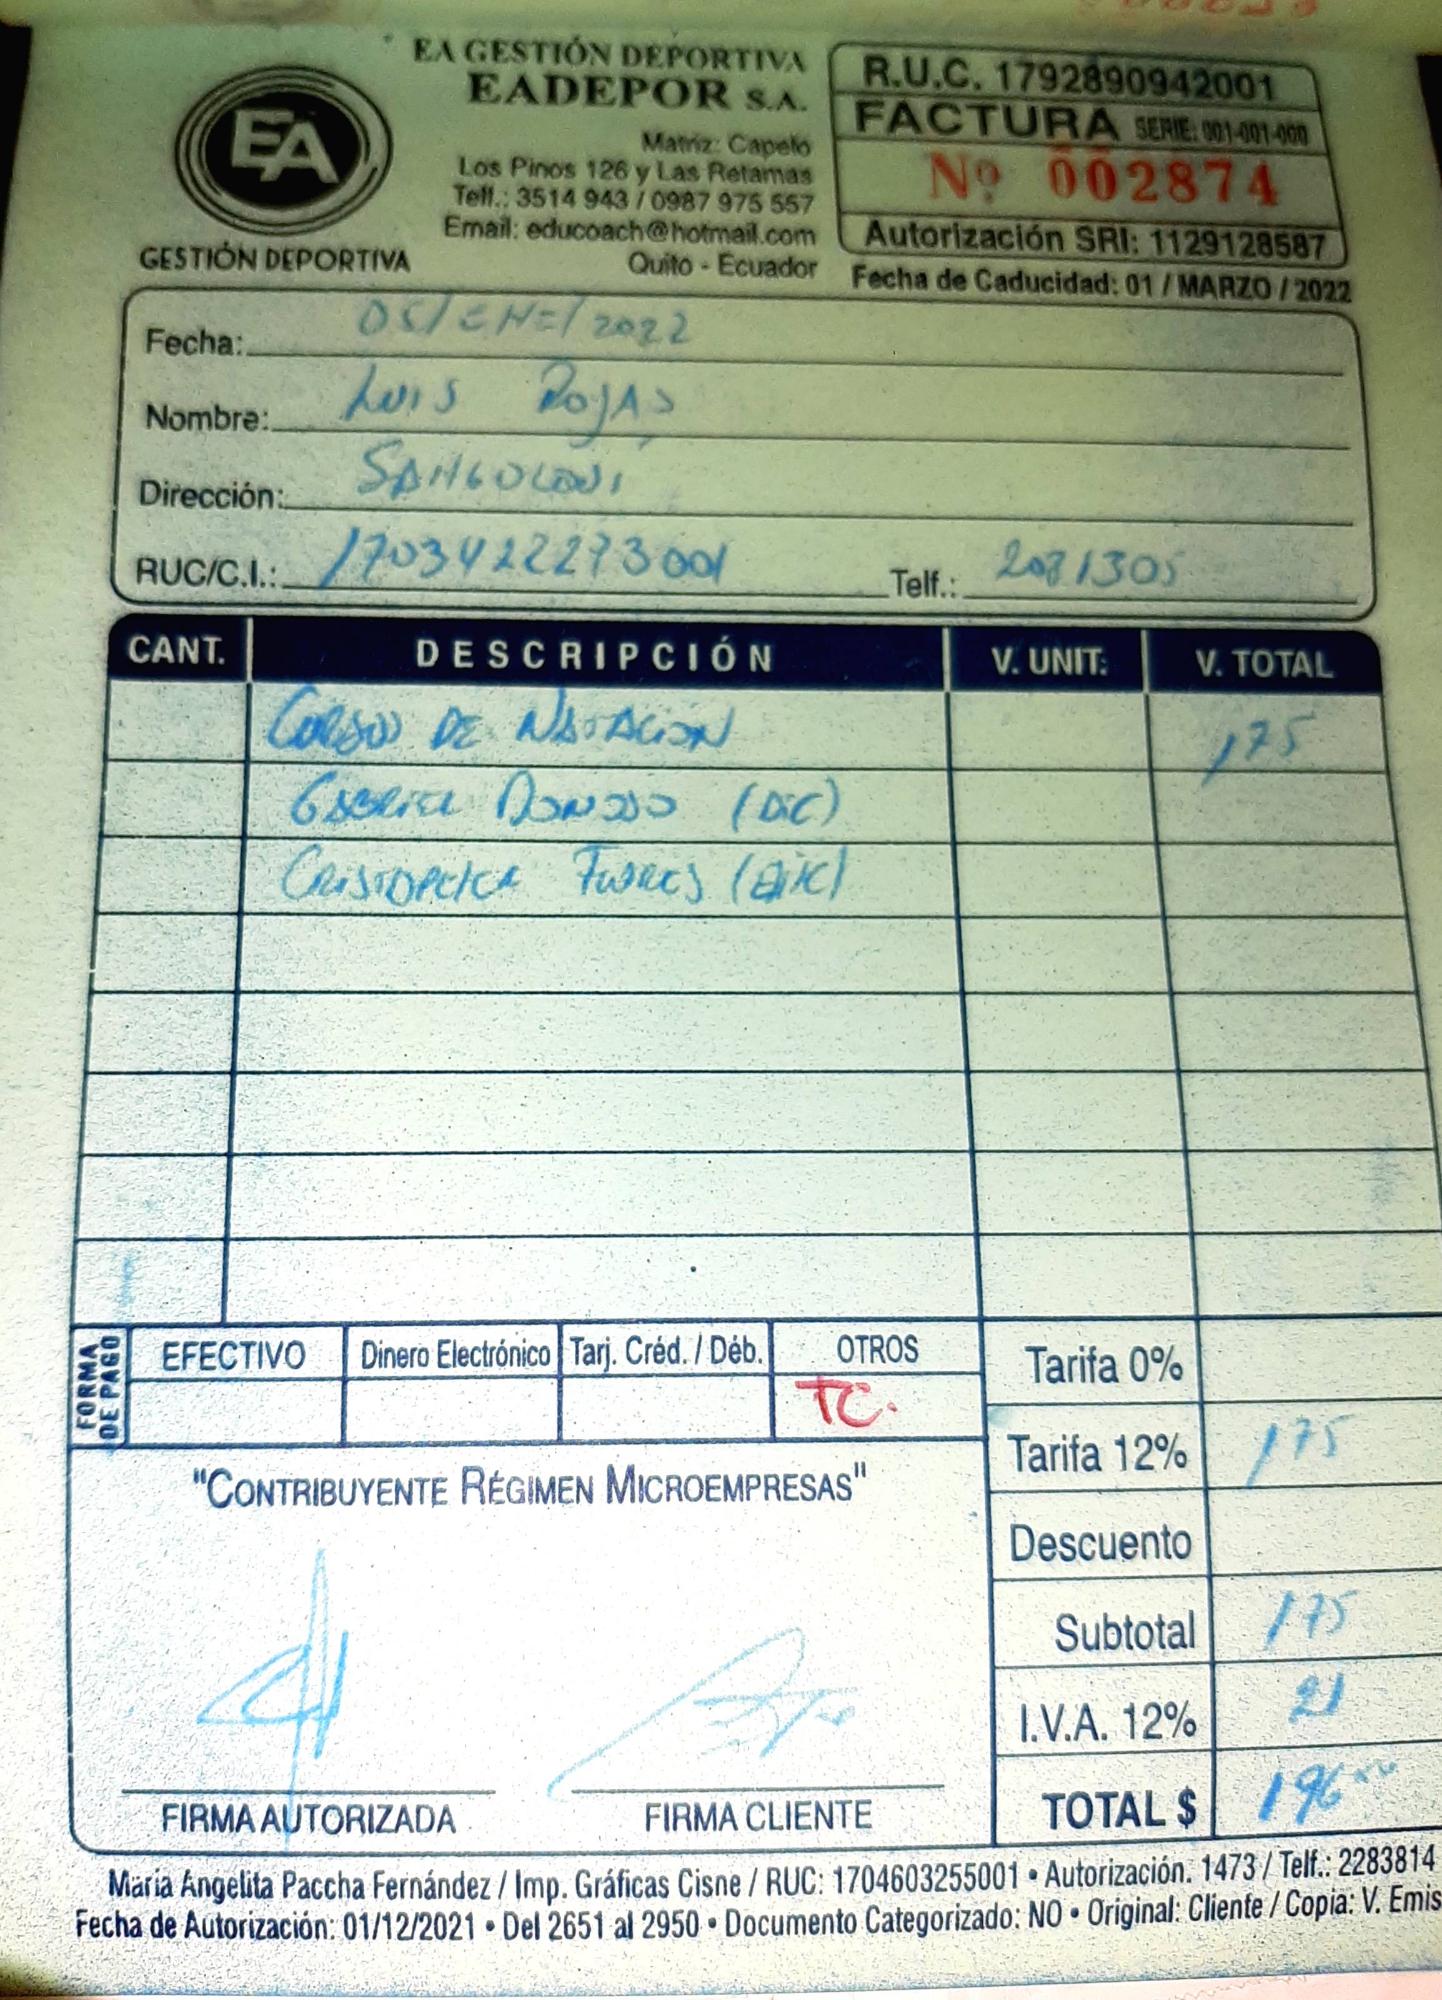 EA GESTIÓN DEPORTIVA
EADEPOR S.A.
EA
GESTIÓN DEPORTIVA
Matriz: Capelo
Los Pinos 126 y Las Retamas
Telf.: 3514 943 / 0987 975 557
Email: educoach@hotmail.com
Quito - Ecuador
R.U.C. 1792890942001
FACTURA SERIE: 001-001-000
Nº 002874
Autorización SRI: 1129128587
Fecha de Caducidad: 01 / MARZO / 2022
Fecha: 05/ENE/2022
Nombre: Luis Rojas
Dirección:
RUC/C.I.: 1703422273001 Telf.: 2081305
CANT. DESCRIPCIÓN V. UNIT: V. TOTAL
DE NATACION 175
Gabriel Donoso (DIC)
FORMA DE PAGO
EFECTIVO Dinero Electrónico Tarj. Créd. / Déb. OTROS
TC.
Tarifa 0%
Tarifa 12% 175
Descuento
Subtotal 175
I.V.A. 12% 21
TOTAL $ 196
"CONTRIBUYENTE RÉGIMEN MICROEMPRESAS"
FIRMA AUTORIZADA FIRMA CLIENTE
María Angelita Paccha Fernández / Imp. Gráficas Cisne / RUC: 1704603255001 • Autorización. 1473 / Telf.: 2283814
Fecha de Autorización: 01/12/2021 • Del 2651 al 2950 • Documento Categorizado: NO • Original: Cliente / Copia: V. Emis